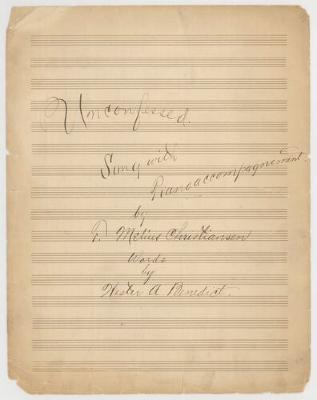 Unconfessed.
Song with
Pianoaccompagnement
by
F. Melius Christiansen
Words
by
Hester A Benedict.